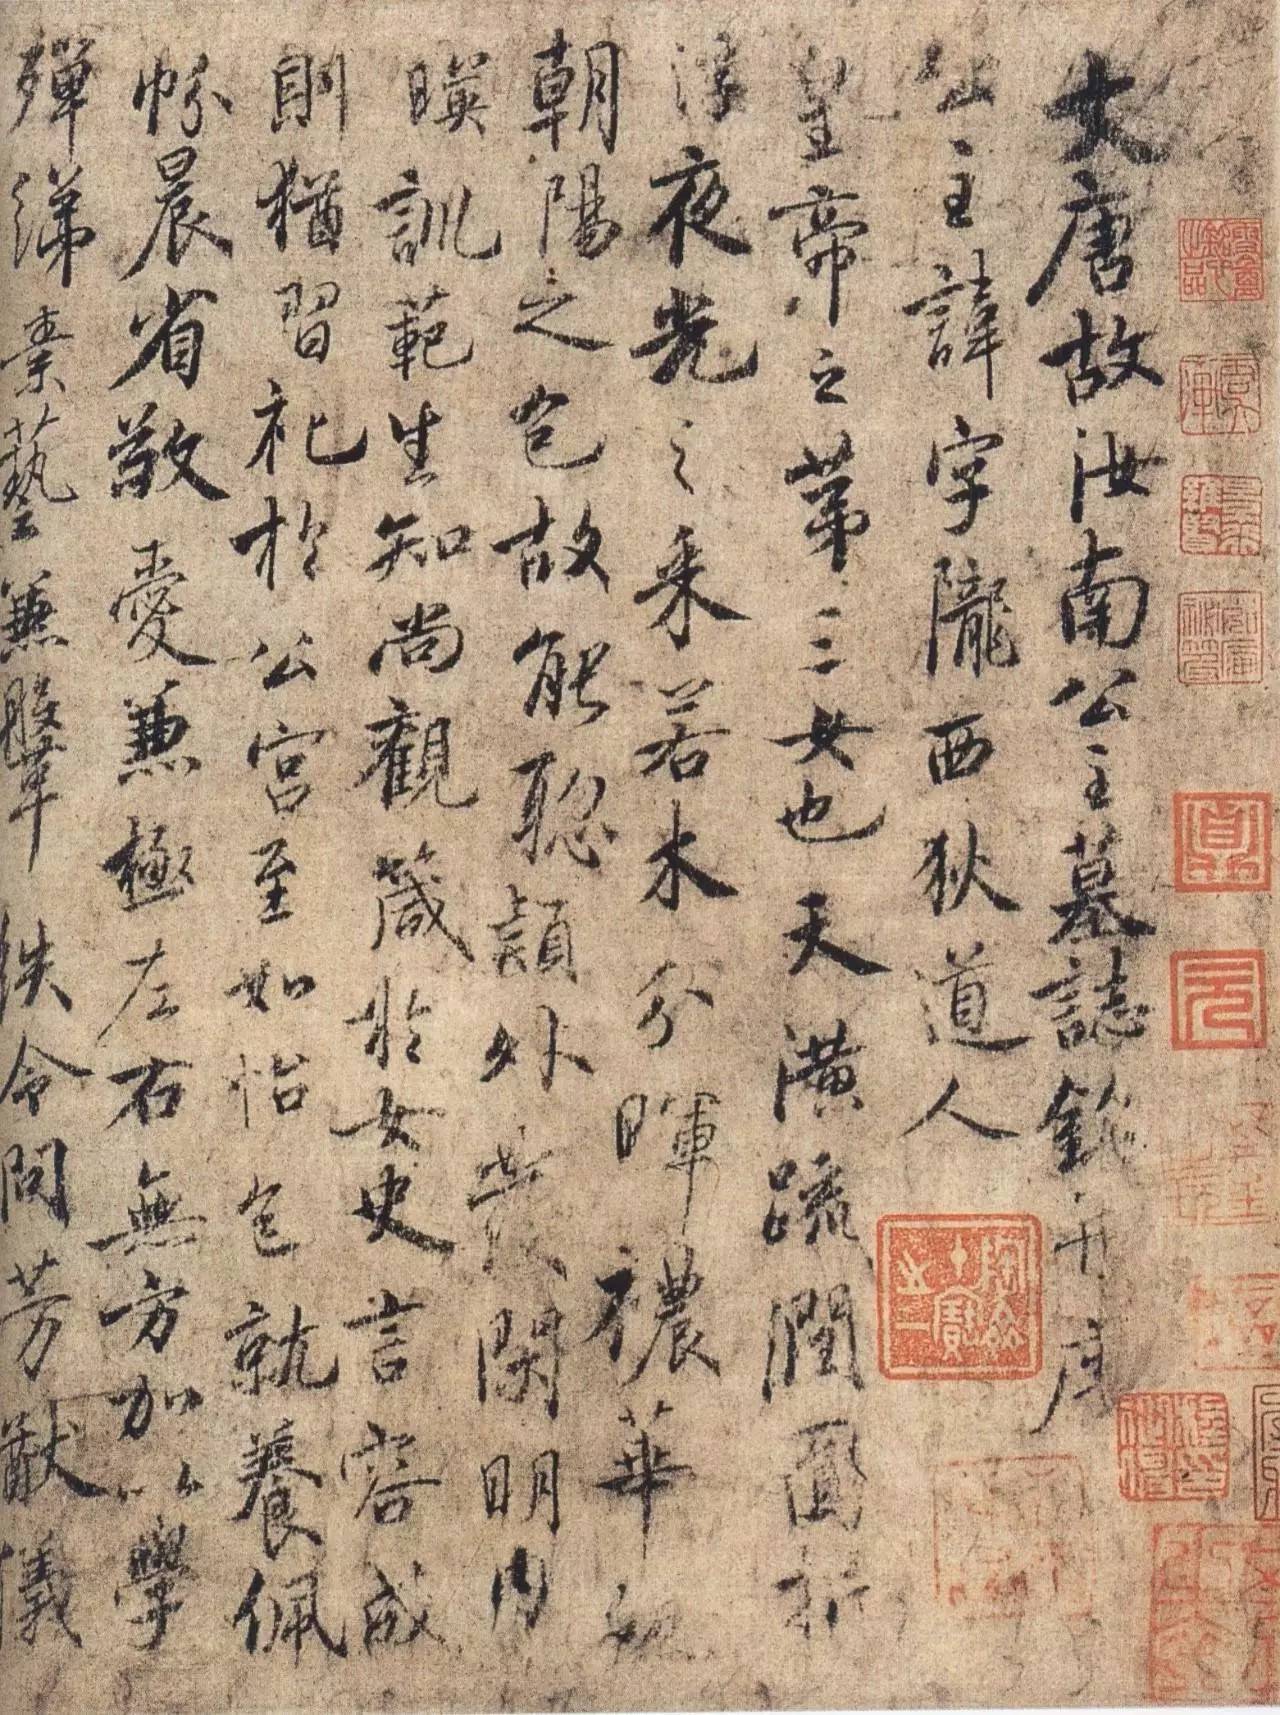 大唐故汝南公主墓誌銘并序
公主諱字隴西狄道人
皇帝之第三女也天潢疏潤圓折
浮夜光之采若木分暉穠華
朝陽之色故能聰穎外發閑明內
暎訓範生知尚觀箴於女史言容成
則猶習礼於公宮至如怡色就養佩
帉晨省敬愛兼極左右無方加以學
殫綈素藝兼鞶紩令問芳猷儀